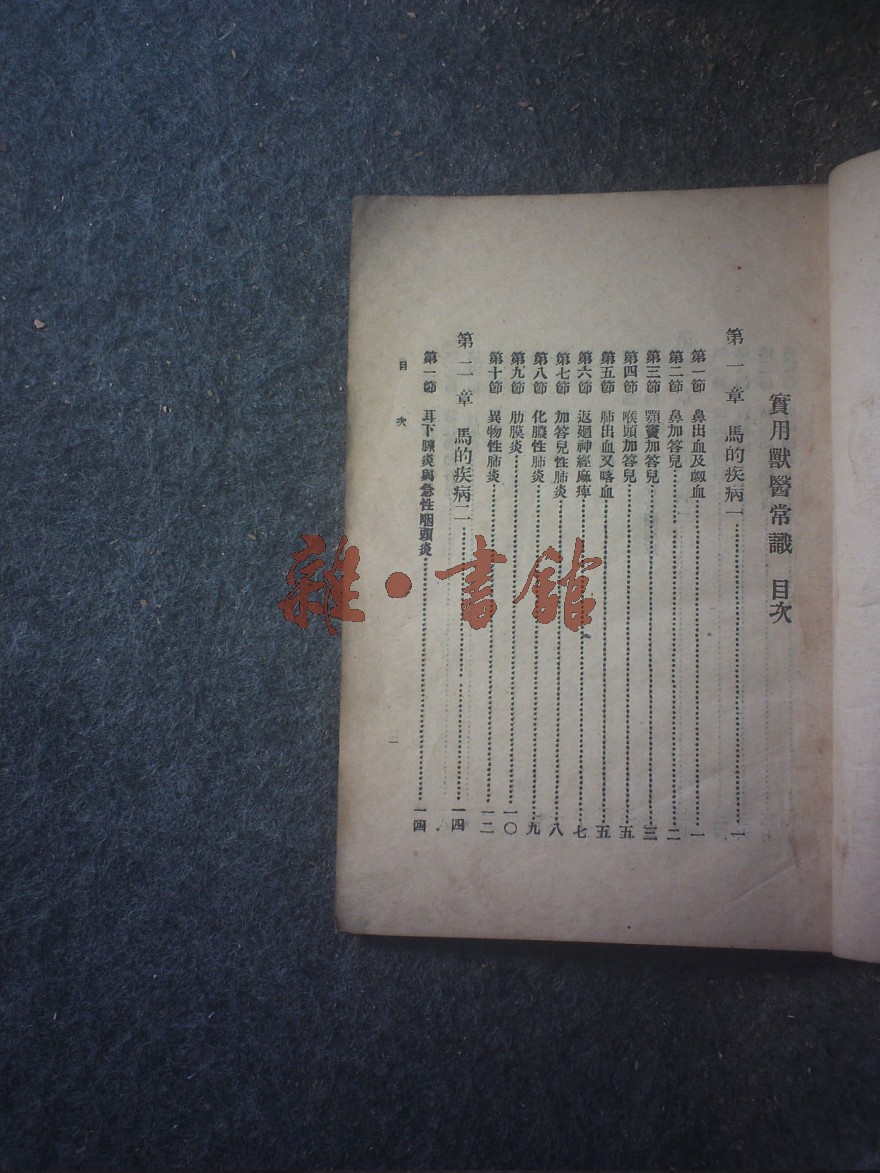 實用獸醫常識 目次
第一章 馬的疾病一 一
第一節 鼻出血及衂血 一
第二節 鼻加答兒 二
第三節 顎竇加答兒 三
第四節 喉頭加答兒 五
第五節 肺出血又喀血 五
第六節 返廻神經麻痺 七
第七節 加答兒性肺炎 八
第八節 化膿性肺炎 九
第九節 肋膜炎 一〇
第十節 異物性肺炎 一二
第二章 馬的疾病二 一四
第一節 耳下腺炎與急性咽頭炎 一四
目次
雜·書館